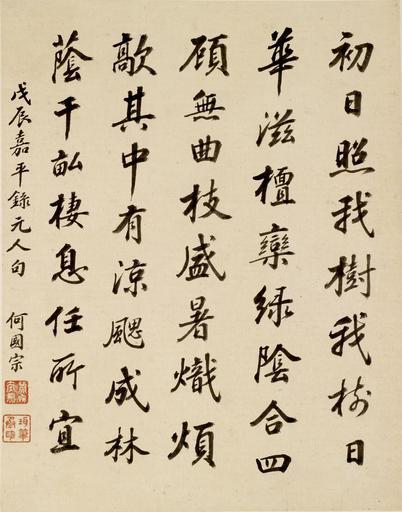 初日照我樹我樹日
華滋檀欒綠陰合四
顧無曲枝盛暑熾煩
歊其中有涼颸成林
蔭千畝棲息任所宜
戊辰嘉平錄元人句
何國宗